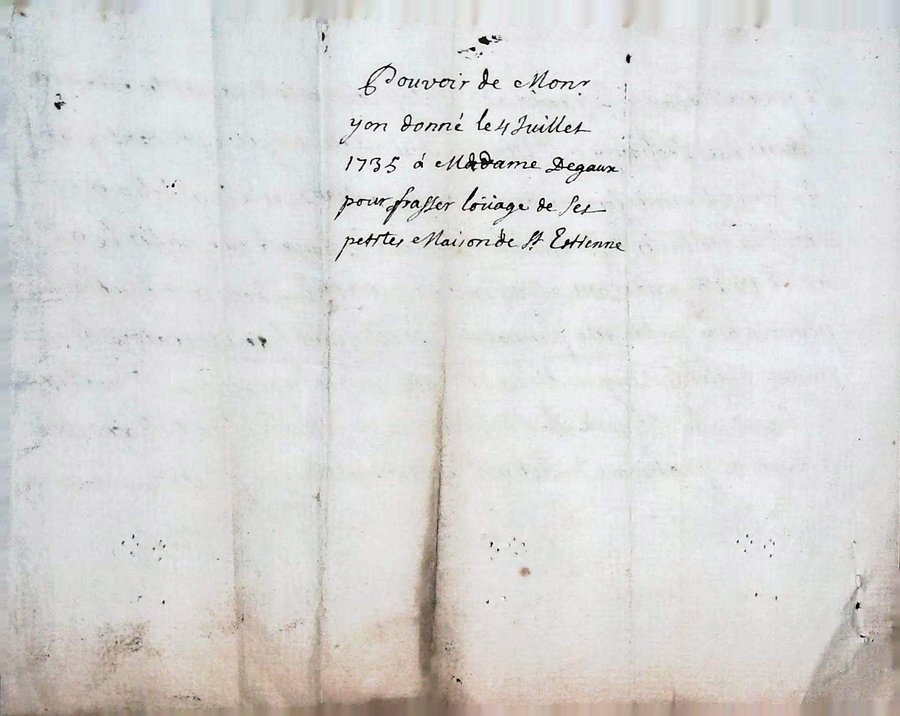 Pouvoir de Monr
yon donné le 4 Juillet
1735 á Madame Degaux
pour frasser loüage de ses
petites Maison de St Estienne